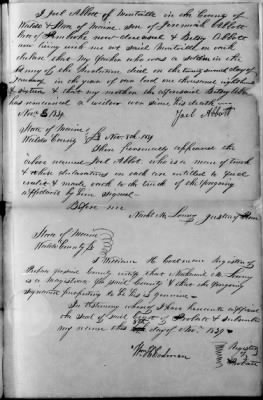 I Joel Abbot of Montville in the County of
Waldo & State of Maine son of Jeremiah Abbott
late of Pembroke now deceased & Betsy Abbott
now living with me at said Montville on oath
declare that my father who was a soldier in the
Army of the Revolution died on the day of
in the year of our Lord one thousand eight hundred
& & that my mother the aforesaid Betsy Abbot
has remained a widow ever since his death
Nov. 5 1839. Joel Abbott
State of Maine
Waldo County ss Nov 5th 1839
Then personally appeared the
above named Joel Abbot who is a man of truth
& whose declarations on oath are entitled to full
credit & made oath to the truth of the foregoing
affidavit by him signed
Before me
Justice of Peace
State of Maine
Waldo County ss
I William H Codman Register of
Probate for said County certify that
is a Magistrate for said County & that the foregoing
signature purporting to be his is genuine
In testimony whereof I have hereunto affixed
the seal of said Court of Probate & subscribed
my name this day of Nov. 1839.
Wm H Codman Register
of
Probate